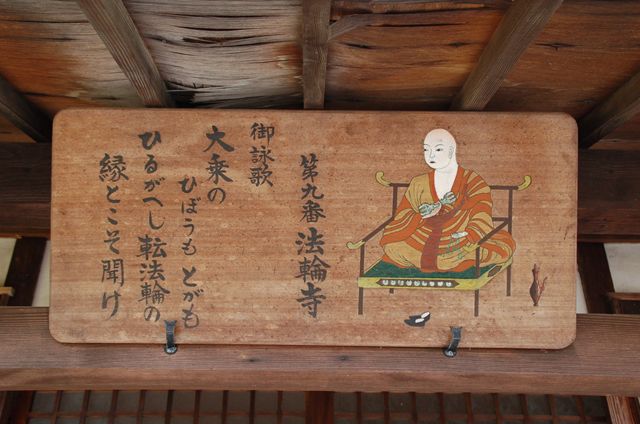 第九番 法輪寺
御詠歌
大乗の
ひぼうも とがも
ひるがへし 転法輪の
縁とこそ聞け